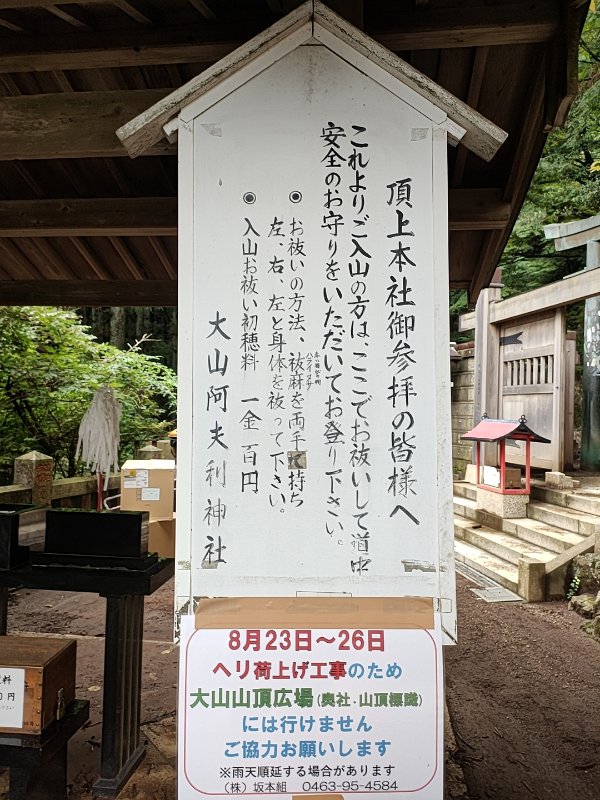 頂上本社御参拝の皆様へ
これよりご入山の方は、ここでお祓いして道中
安全のお守りをいただいてお登り下さい。
◉ お祓いの方法、祓麻を両手で持ち
左、右、左と身体を祓って下さい。
◉ 入山お祓い初穂料 一金 百円
大山阿夫利神社
8月23日～26日
ヘリ荷上げ工事のため
大山山頂広場(奥社・山頂標識)
には行けません
ご協力お願いします
※雨天順延する場合があります
(株)坂本組 0463-95-4584